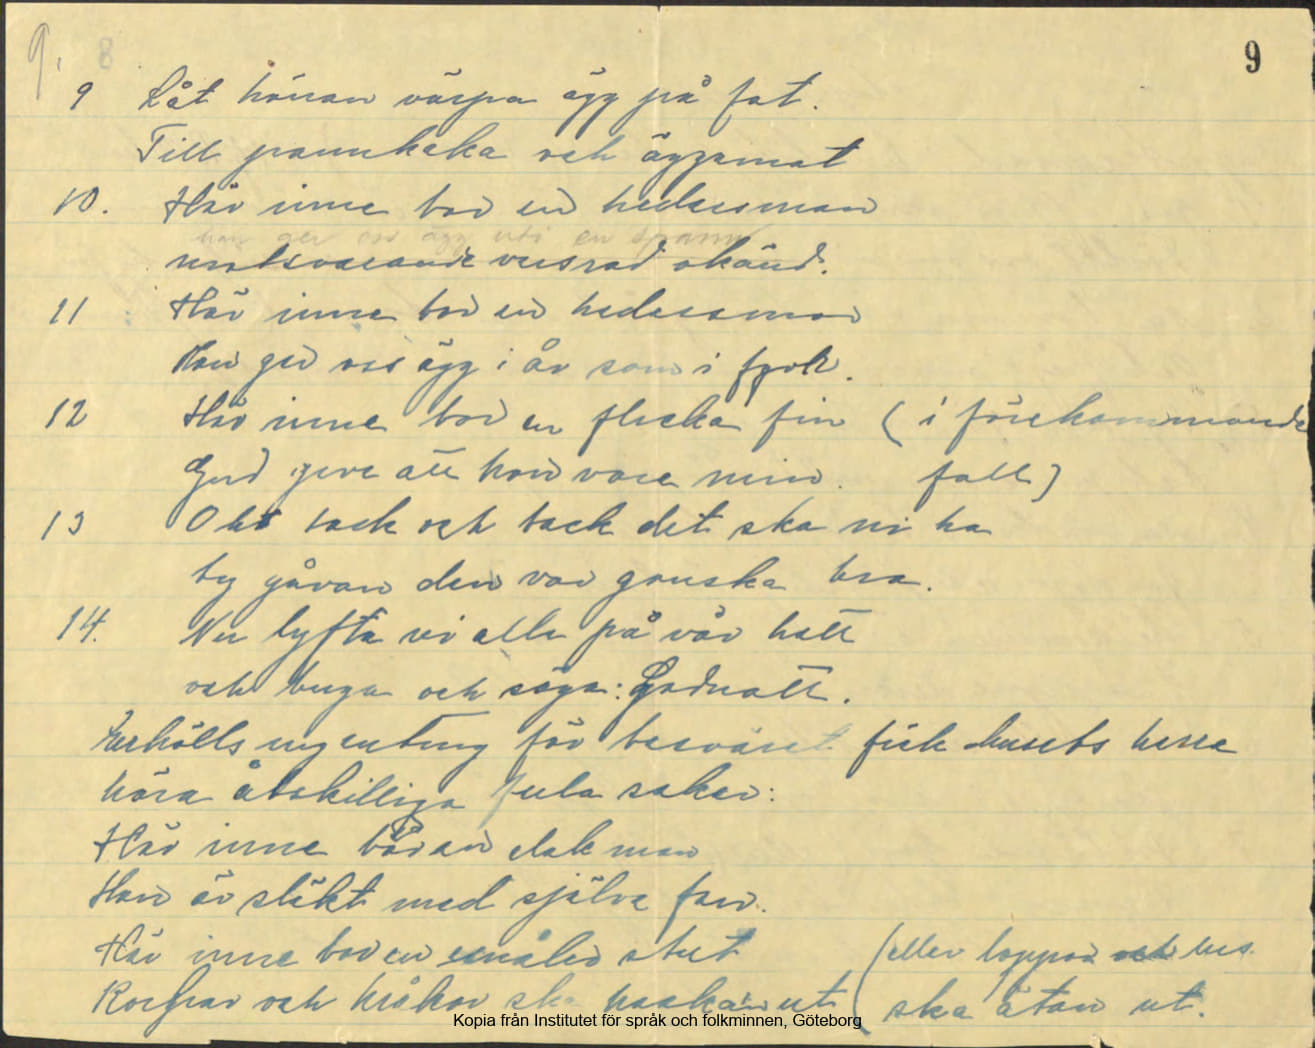 9. 8 9
9 Låt hönan värpa ägg på fat.
Till pannkaka och äggamat
10. Här inne bor en hedersman
han ger oss ägg uti en spann
motsvarande versrad okänd.
11 Här inne bor en hedersman
Han ger oss ägg i år som i fjol.
12 Här inne bor en flicka fin (i förekommande
Gud give att hon vore min. fall)
13 Oh tack och tack det ska ni ha
ty gåvan den var ganska bra.
14. Nu lyfta vi alla på vår hatt
och buga och säga: Godnatt.
Erhölls ingenting för besväret fick husets herre
höra åtskilliga fula saker:
Här inne bor an elak man
Han är släkt med själva fan.
Här inne bor en stut (eller loppor och lus
Korpar och kråkor ska hackan ut (ska ätan ut.
Kopia från Institutet för språk och folkminnen, Göteborg